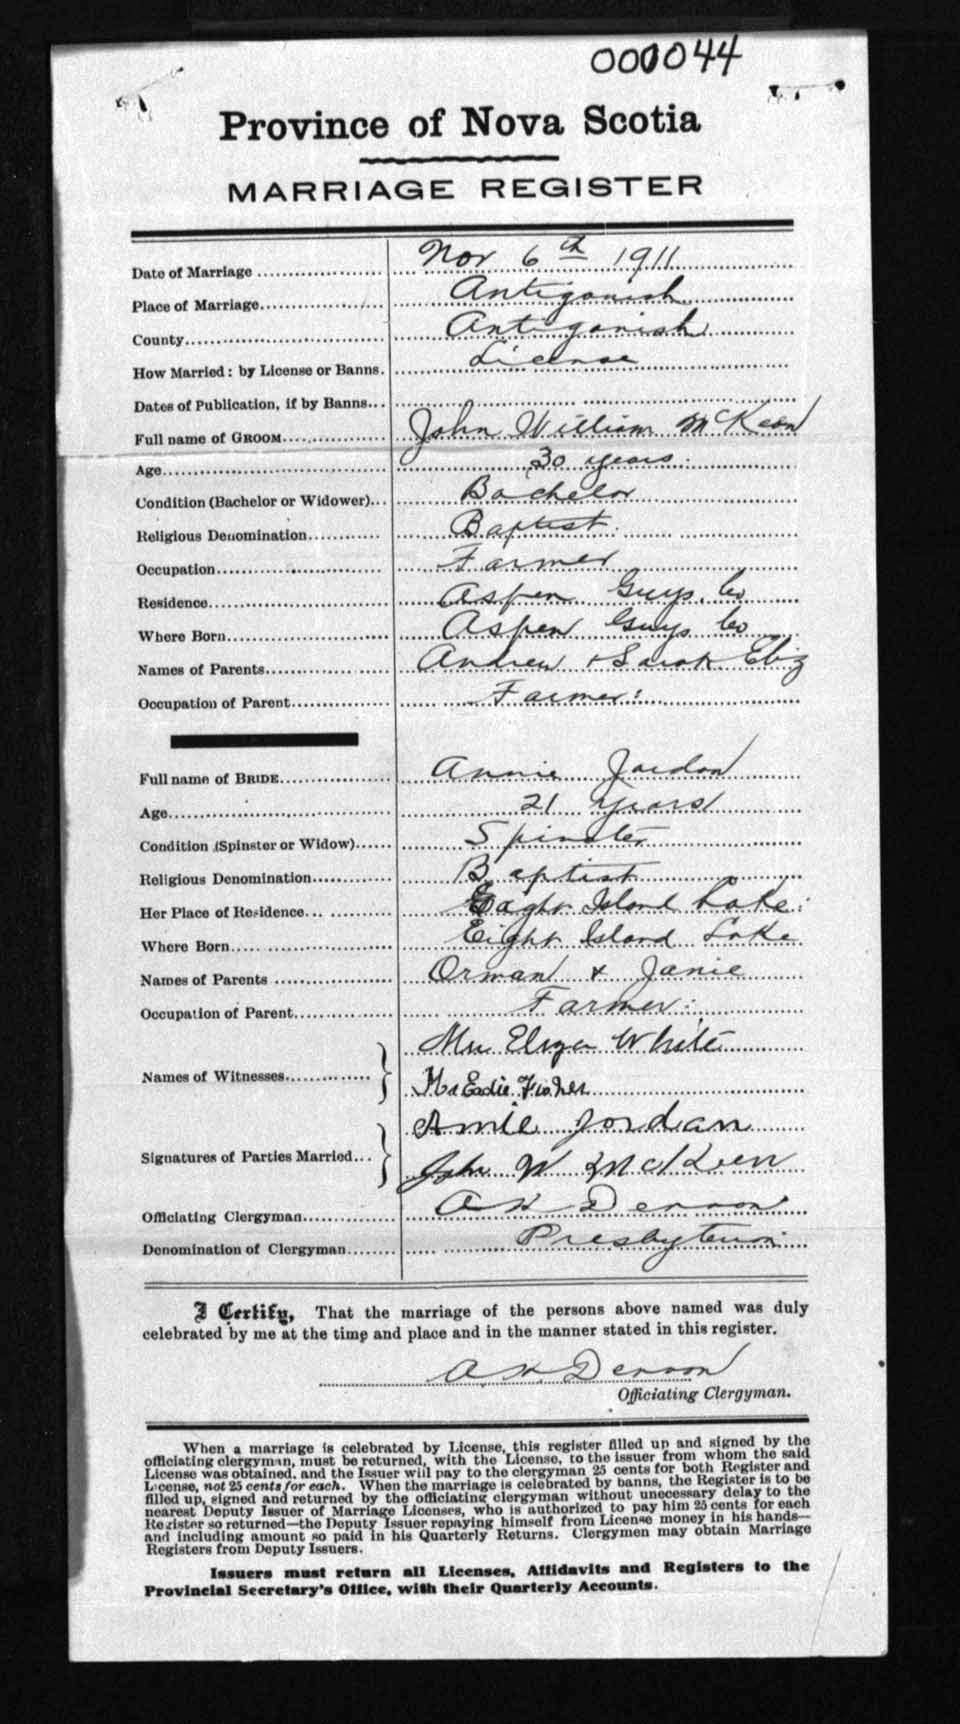 000044
Province of Nova Scotia
MARRIAGE REGISTER
Date of Marriage Nov 6th 1911
Place of Marriage Antigonish
County Antigonish
How Married: by License or Banns. License
Dates of Publication, if by Banns
Full name of GROOM John William McKeen
Age 30 years
Condition (Bachelor or Widower) Bachelor
Religious Denomination Baptist
Occupation Farmer
Residence Aspen Guys. Co
Where Born Aspen Guys Co
Names of Parents Andrew + Sarah Eliz
Occupation of Parent Farmer
Full name of BRIDE Annie Jordan
Age 21 years
Condition (Spinster or Widow) Spinster
Religious Denomination Baptist
Her Place of Residence Eight Island Lake
Where Born Eight Island Lake
Names of Parents Orman + Janie
Occupation of Parent Farmer
Names of Witnesses White
Fisher
Signatures of Parties Married Annie Jordan
John W McKeen
Officiating Clergyman A
Denomination of Clergyman Presbyterian
I Certify, That the marriage of the persons above named was duly
celebrated by me at the time and place and in the manner stated in this register.
A
Officiating Clergyman.
When a marriage is celebrated by License, this register filled up and signed by the
officiating clergyman, must be returned, with the License, to the issuer from whom the said
License was obtained, and the Issuer will pay to the clergyman 25 cents for both Register and
License, not 25 cents for each. When the marriage is celebrated by banns, the Register is to be
filled up, signed and returned by the officiating clergyman without unnecessary delay to the
nearest Deputy Issuer of Marriage Licenses, who is authorized to pay him 25 cents for each
Register so returned—the Deputy Issuer repaying himself from License money in his hands—
and including amount so paid in his Quarterly Returns. Clergymen may obtain Marriage
Registers from Deputy Issuers.
Issuers must return all Licenses, Affidavits and Registers to the
Provincial Secretary's Office, with their Quarterly Accounts.